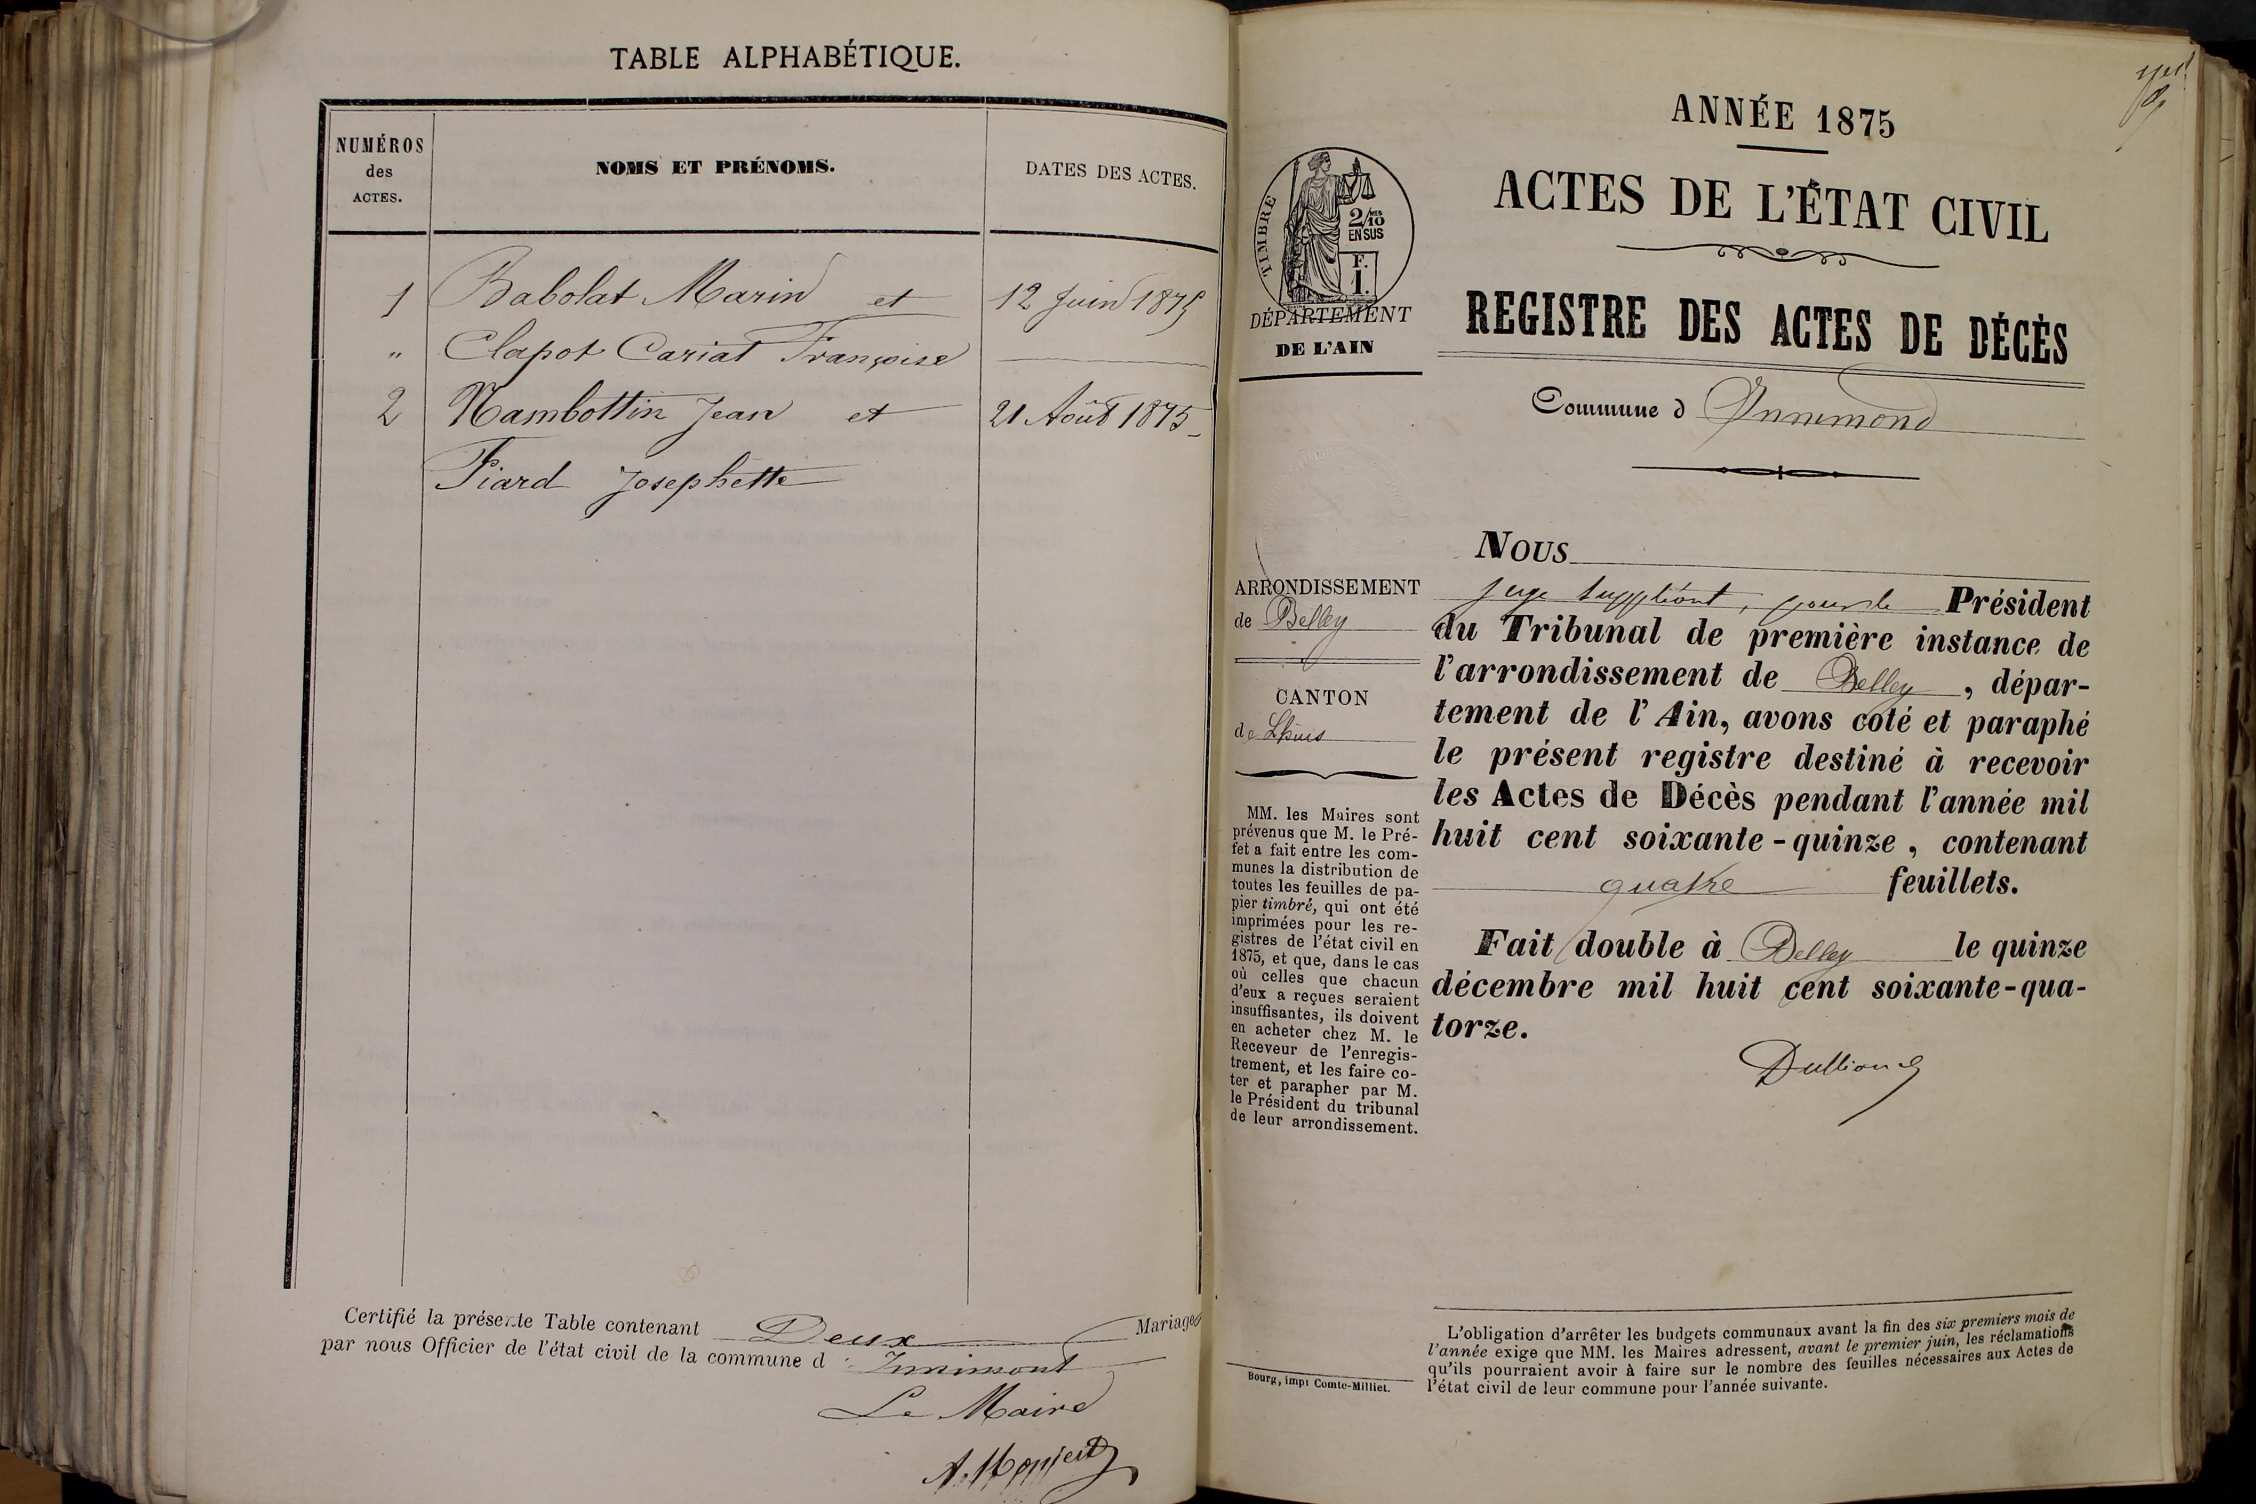 TABLE ALPHABÉTIQUE.
NUMÉROS
des
ACTES.
NOMS ET PRÉNOMS.
DATES DES ACTES.
1 Babolat Marin et 12 Juin 1875
" Clapot Cariat Françoise
2 Nambottin Jean et 21 Août 1875
Fiard Josephette
Certifié la présente Table contenant Deux Mariages
par nous Officier de l'état civil de la commune d Innimont
Le Maire
ANNÉE 1875
ACTES DE L'ÉTAT CIVIL
REGISTRE DES ACTES DE DÉCÈS
Commune d Innimond
TIMBRE
2/10
MES
EN SUS
F.
1.
DÉPARTEMENT
DE L'AIN
ARRONDISSEMENT
de Belley
CANTON
de Lhuis
MM. les Maires sont
prévenus que M. le Pré-
fet a fait entre les com-
munes la distribution de
toutes les feuilles de pa-
pier timbré, qui ont été
imprimées pour les re-
gistres de l'état civil en
1875, et que, dans le cas
où celles que chacun
d'eux a reçues seraient
insuffisantes, ils doivent
en acheter chez M. le
Receveur de l'enregis-
trement, et les faire co-
ter et parapher par M.
le Président du tribunal
de leur arrondissement.
Bourg, impr Comte-Milliet.
NOUS
juge suppléant, pour le Président
du Tribunal de première instance de
l'arrondissement de Belley, dépar-
tement de l'Ain, avons coté et paraphé
le présent registre destiné à recevoir
les Actes de Décès pendant l'année mil
huit cent soixante-quinze, contenant
quatre feuillets.
Fait double à Belley le quinze
décembre mil huit cent soixante-qua-
torze.
L'obligation d'arrêter les budgets communaux avant la fin des six premiers mois de
l'année exige que MM. les Maires adressent, avant le premier juin, les réclamations
qu'ils pourraient avoir à faire sur le nombre des feuilles nécessaires aux Actes de
l'état civil de leur commune pour l'année suivante.